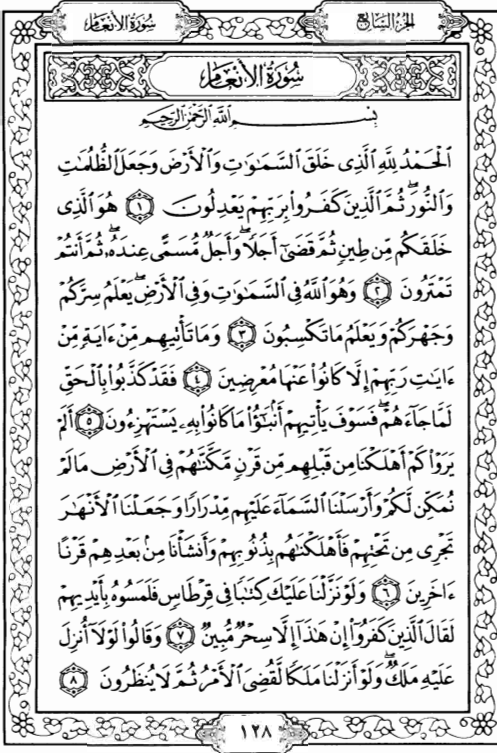 سُورَةُ الأَنْعَامِ
الجُزْءُ السَّابِعُ
سُورَةُ الأَنْعَامِ
بِسْمِ اللَّهِ الرَّحْمَٰنِ الرَّحِيمِ
ٱلْحَمْدُ لِلَّهِ ٱلَّذِى خَلَقَ ٱلسَّمَٰوَٰتِ وَٱلْأَرْضَ وَجَعَلَ ٱلظُّلُمَٰتِ
وَٱلنُّورَۖ ثُمَّ ٱلَّذِينَ كَفَرُوا۟ بِرَبِّهِمْ يَعْدِلُونَ ١ هُوَ ٱلَّذِى
خَلَقَكُم مِّن طِينٍ ثُمَّ قَضَىٰٓ أَجَلًاۖ وَأَجَلٌ مُّسَمًّى عِندَهُۥۖ ثُمَّ أَنتُمْ
تَمْتَرُونَ ٢ وَهُوَ ٱللَّهُ فِى ٱلسَّمَٰوَٰتِ وَفِى ٱلْأَرْضِۖ يَعْلَمُ سِرَّكُمْ
وَجَهْرَكُمْ وَيَعْلَمُ مَا تَكْسِبُونَ ٣ وَمَا تَأْتِيهِم مِّنْ ءَايَةٍ مِّنْ
ءَايَٰتِ رَبِّهِمْ إِلَّا كَانُوا۟ عَنْهَا مُعْرِضِينَ ٤ فَقَدْ كَذَّبُوا۟ بِٱلْحَقِّ
لَمَّا جَآءَهُمْۖ فَسَوْفَ يَأْتِيهِمْ أَنۢبَٰٓؤُا۟ مَا كَانُوا۟ بِهِۦ يَسْتَهْزِءُونَ ٥ أَلَمْ
يَرَوْا۟ كَمْ أَهْلَكْنَا مِن قَبْلِهِم مِّن قَرْنٍ مَّكَّنَّٰهُمْ فِى ٱلْأَرْضِ مَا لَمْ
نُمَكِّن لَّكُمْ وَأَرْسَلْنَا ٱلسَّمَآءَ عَلَيْهِم مِّدْرَارًا وَجَعَلْنَا ٱلْأَنْهَٰرَ
تَجْرِى مِن تَحْتِهِمْ فَأَهْلَكْنَٰهُم بِذُنُوبِهِمْ وَأَنشَأْنَا مِنۢ بَعْدِهِمْ قَرْنًا
ءَاخَرِينَ ٦ وَلَوْ نَزَّلْنَا عَلَيْكَ كِتَٰبًا فِى قِرْطَاسٍ فَلَمَسُوهُ بِأَيْدِيهِمْ
لَقَالَ ٱلَّذِينَ كَفَرُوٓا۟ إِنْ هَٰذَآ إِلَّا سِحْرٌ مُّبِينٌ ٧ وَقَالُوا۟ لَوْلَآ أُنزِلَ
عَلَيْهِ مَلَكٌۖ وَلَوْ أَنزَلْنَا مَلَكًا لَّقُضِىَ ٱلْأَمْرُ ثُمَّ لَا يُنظَرُونَ ٨
١٢٨